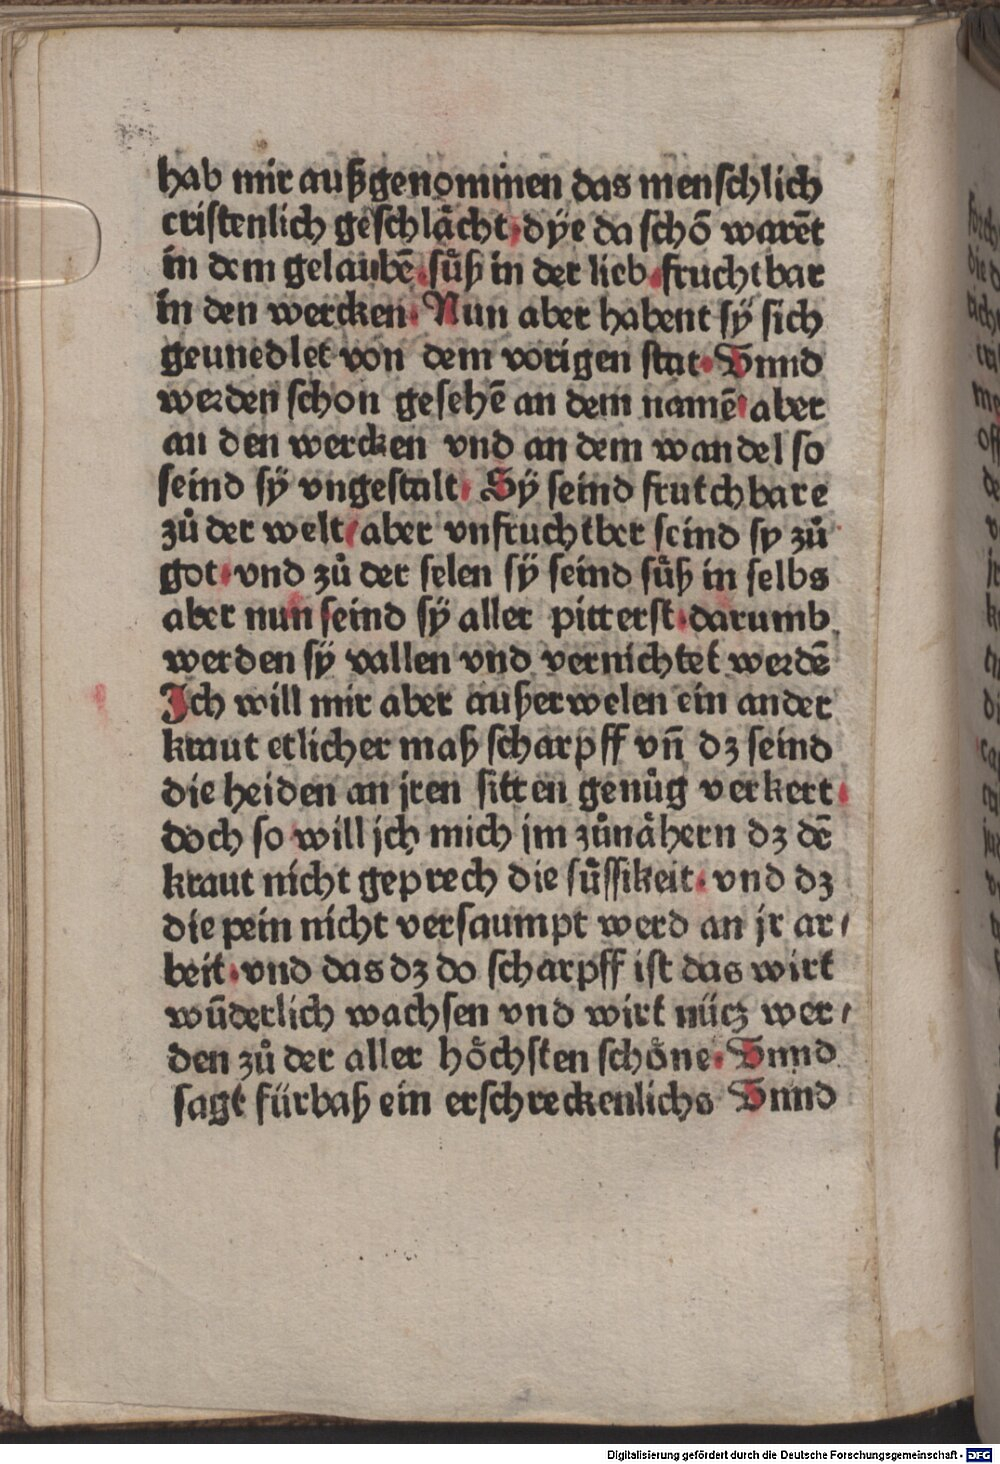 hab mir außgenommen das menschlich
cristenlich geschlächt, dÿe da schō warēt
in dem gelaubē. sůß in der lieb. fruchtbar
in den wercken. Nun aber habent sÿ sich
geunedlet von dem vorigen stat. Vnnd
werden schon gesehē an dem namē, aber
an den wercken vnd an dem wandel so
seind sÿ vngestalt. Sÿ seind frutchbare
zů der welt, aber vnfruchtber seind sy zů
got. vnd zů der selen sÿ seind sůß in selbs
aber nun seind sÿ aller pitterst. darumb
werden sÿ vallen vnd vernichtet werdē
Ich will mir aber außerwelen ein ander
kraut etlicher maß scharpff vñ dz seind
die heiden an jren sitten genůg verkert.
doch so will jch mich jm zůnähern dz dē
kraut nicht geprech die sůssikeit. vnd dz
die pein nicht versaumpt werd an jr ar/
beit. vnd das dz do scharpff ist das wirt
wūderlich wachsen vnd wirt nücz wer/
den zů der aller höchsten schöne. Vnnd
sagt fürbaß ein erschreckenlichs Vnnd
Digitalisierung gefördert durch die Deutsche Forschungsgemeinschaft - DFG